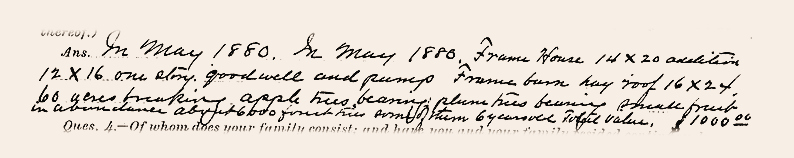 thereof.)
Ans. In May 1880. In May 1880. Frame House 14 X 20 addition
12 X 16 one story. good well and pump Frame barn hay roof 16 X 24
60 acres breaking apple trees bearing plum trees bearing small fruit
in abundance about 6000 forest trees some of them 6 years old Total value. $1000 00
Ques. 4.—Of whom does your family consist; and have you and your family